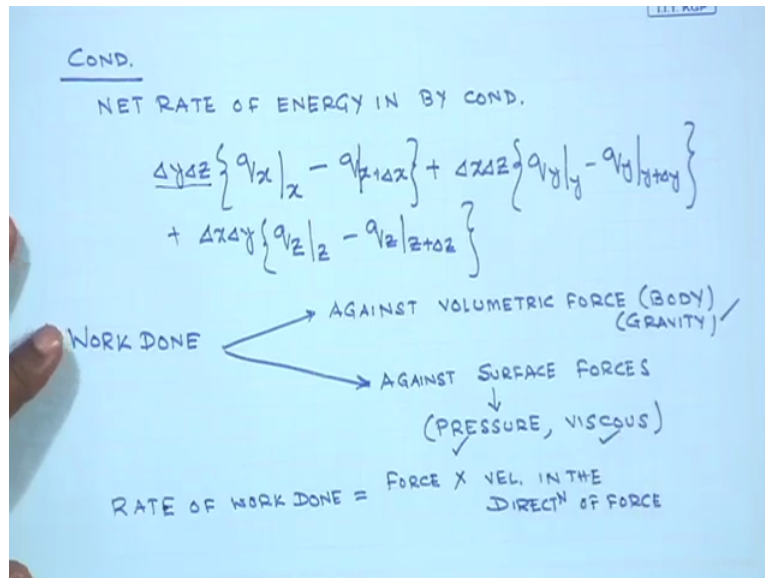 I.I.T. KGP
COND.
NET RATE OF ENERGY IN BY COND.
ΔyΔz {qx|x − q|x+Δx} + ΔxΔz {qy|y − qy|y+Δy}
+ ΔxΔy {qz|z − qz|z+Δz}
AGAINST VOLUMETRIC FORCE (BODY)
(GRAVITY)
WORK DONE
AGAINST SURFACE FORCES
(PRESSURE, VISCOUS)
RATE OF WORK DONE = FORCE X VEL. IN THE
DIRECTᴺ OF FORCE